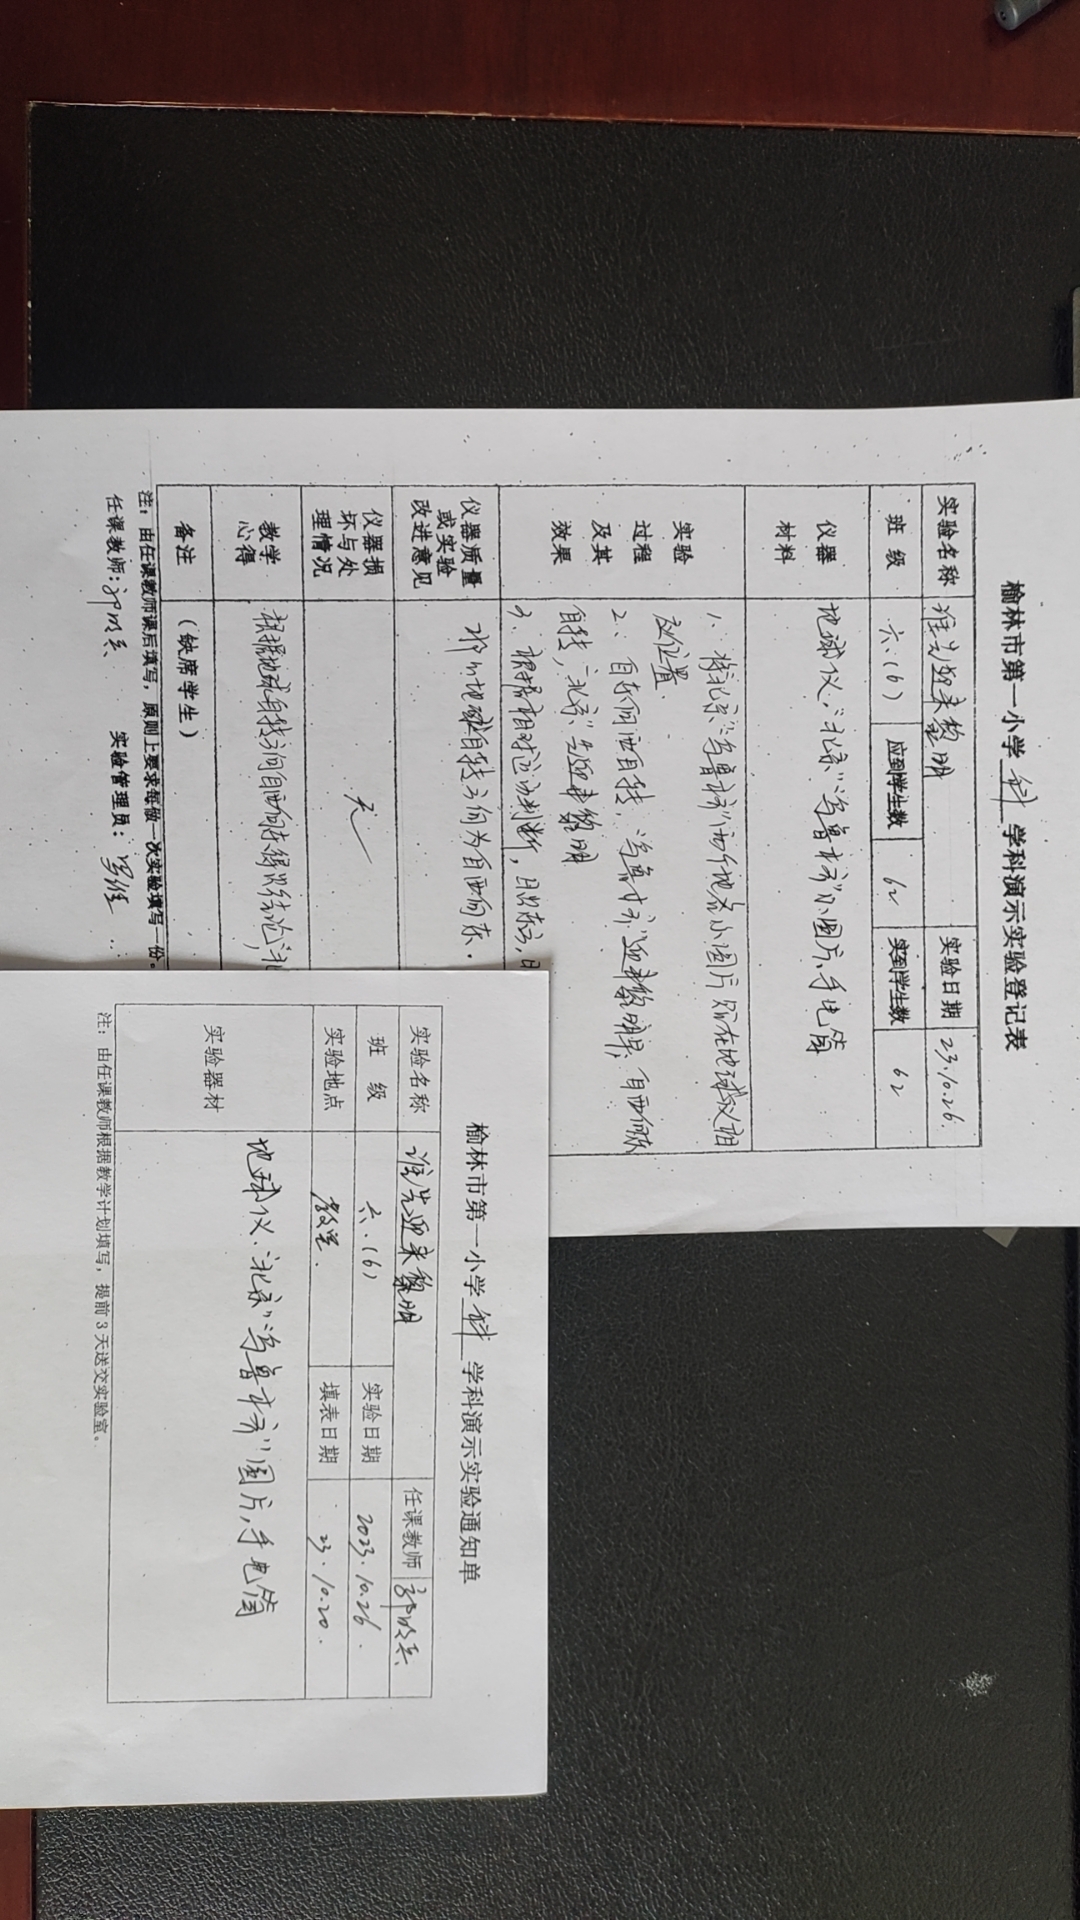 榆林市第一小学 科 学科演示实验登记表
实验名称 谁先迎来黎明 实验日期 23.10.26.
班 级 六.(6) 应到学生数 62 实到学生数 62
仪器
材料
地球仪,“北京”“乌鲁木齐”小图片,手电筒
实验
过程
及其
效果
1、将“北京”“乌鲁木齐”两个地名小图片贴在地球仪相
应位置
2、自东向西自转,“乌鲁木齐”迎来黎明早,自西向东
自转,“北京”先迎来黎明
3、根据相对运动判断,日出东方,日
仪器质量
或实验
改进意见
地球自转方向为自西向东.
仪器损
坏与处
理情况
无
教学
心得
根据地球自转方向自西向东得出结论,北
备注 (缺席学生)
注:由任课教师课后填写,原则上要求每做一次实验填写一份。
任课教师: 实验管理员:
榆林市第一小学 科 学科演示实验通知单
实验名称 谁先迎来黎明 任课教师
班 级 六.(6) 实验日期 2023.10.26.
实验地点 教室. 填表日期 23.10.20.
实验器材 地球仪.“北京”“乌鲁木齐”图片,手电筒
注:由任课教师根据教学计划填写,提前3天送交实验室。